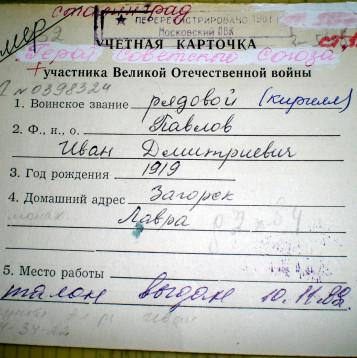 сталинград
ПЕРЕРЕГИСТРИРОВАНО 1981 г.
Московский ОВК
УЧЕТНАЯ КАРТОЧКА
Герой Советского Союза
участника Великой Отечественной войны
№0398324
1. Воинское звание рядовой (кирилл)
2. Ф., и., о. Павлов
Иван Дмитриевич
3. Год рождения 1919
4. Домашний адрес Загорск
Лавра
5. Место работы
талон выдан 10.11.82.